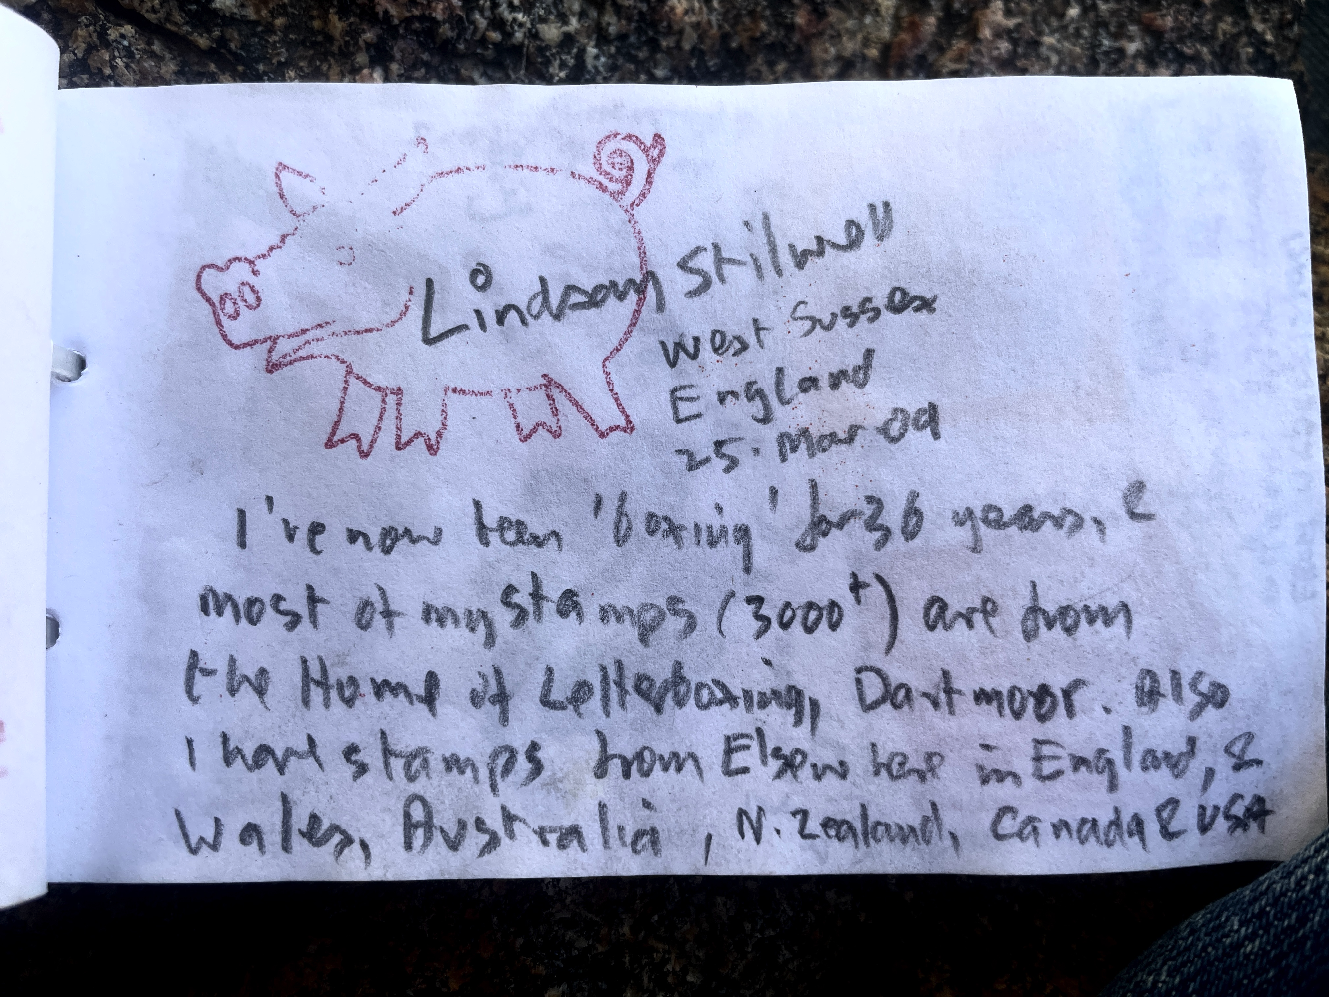 Lindsay Stilwell
West Sussex
England
25. Mar 09
I've now been 'boxing' for 36 years, &
most of my stamps (3000+) are from
the Home of Letterboxing, Dartmoor. Also
I have stamps from Elsewhere in England, &
Wales, Australia, N. Zealand, Canada & USA